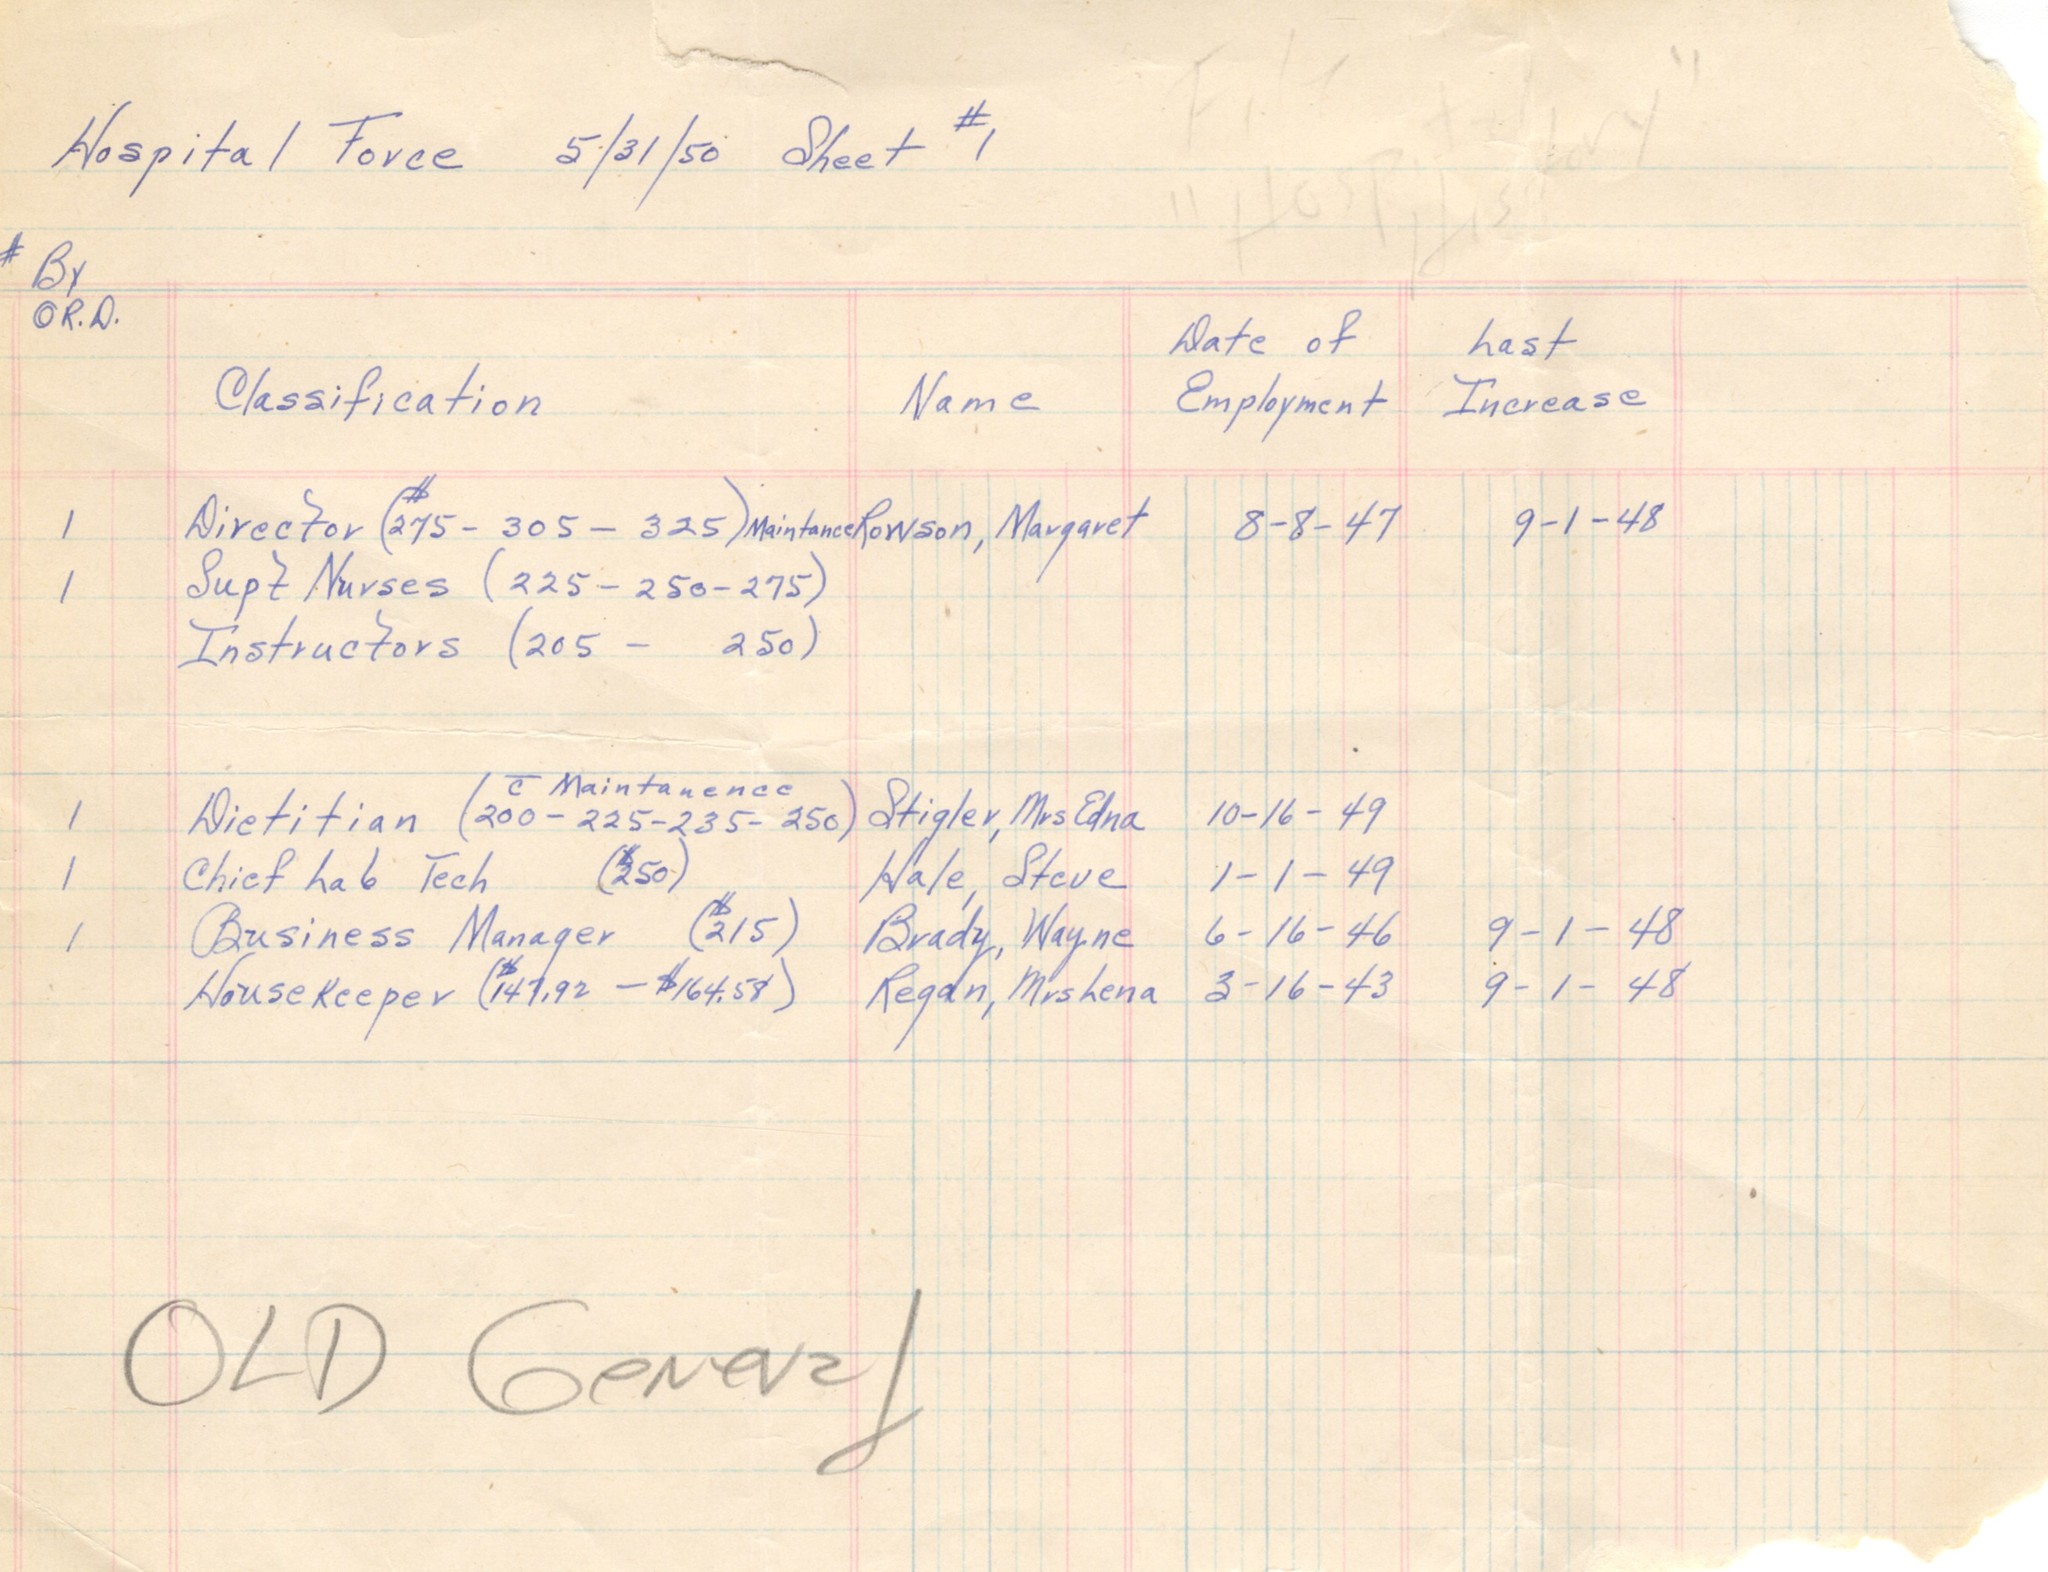 Hospital Force 5/31/50 Sheet #1
# By
O R.D.
Date of Last
Classification Name Employment Increase
1 Director ($275 - 305 - 325) Maintance Rowson, Margaret 8-8-47 9-1-48
1 Supt Nurses (225 - 250 - 275)
Instructors (205 - 250)
c̄ Maintanence
1 Dietitian (200 - 225 - 235 - 250) Stigler, Mrs Edna 10-16-49
1 Chief Lab Tech ($250) Hale, Steve 1-1-49
1 Business Manager ($215) Brady, Wayne 6-16-46 9-1-48
Housekeeper ($147.92 - $164.58) Regan, Mrs Lena 3-16-43 9-1-48
OLD